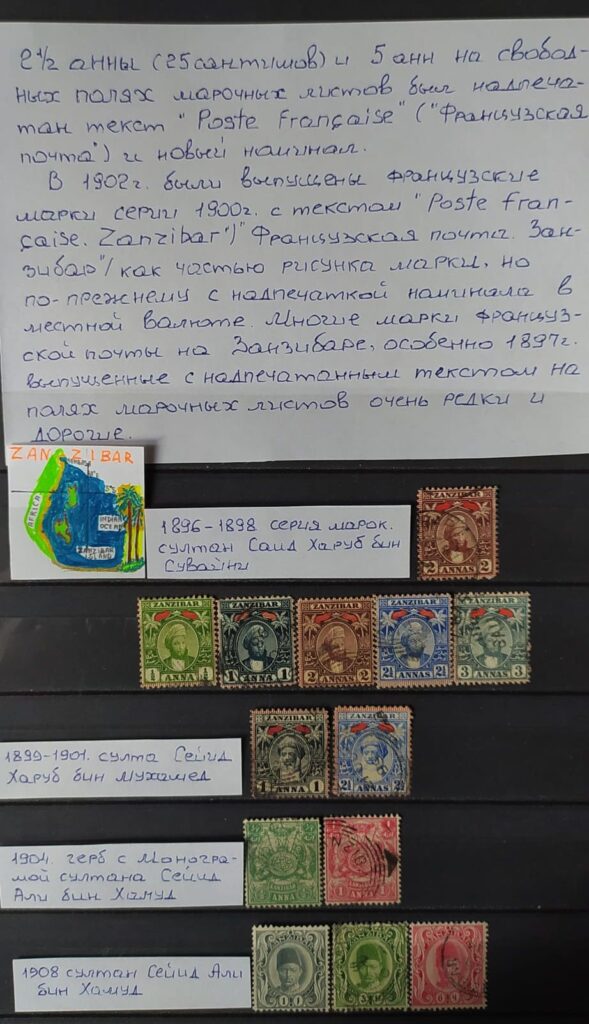 2½ анны (25 сантимов) и 5 анн на свобод-
ных полях марочных листов был надпеча-
тан текст "Poste Française" ("Французская
почта") и новый наминал.
В 1902г. были выпущены французские
марки серии 1900г. с текстом "Poste Fran-
çaise. Zanzibar")" Французская почта. Зан-
зибар"/ как частью рисунка марки, но
по-прежнему с надпечаткой наминала в
местной валюте. Многие марки француз-
ской почты на Занзибаре, особенно 1897г.
выпущенные с надпечатанным текстом на
полях марочных листов очень редки и
дорогие.
ZANZIBAR
AFRICA
INDIAN
OCEAN
ZANZIBAR
ISLAND
1896-1898 серия марок.
султан Саид Харуб бин
Сувайни
ZANZIBAR
2 2
ANNAS
ZANZIBAR
½ ½
ANNA
ZANZIBAR
1 1
ANNA
ZANZIBAR
2 2
ANNAS
ZANZIBAR
2½ 2½
ANNAS
ZANZIBAR
3 3
ANNAS
1899-1901. султа Сейид
Харуб бин Мухамед
ZANZIBAR
1 1
ANNA
ZANZIBAR
2½ 2½
ANNAS
1904. герб с Моногра-
мой султана Сейид
Али бин Хамуд
ZANZIBAR
ANNA
ZANZIBAR
1 ANNA 1
1908 султан Сейид Али
бин Хамуд